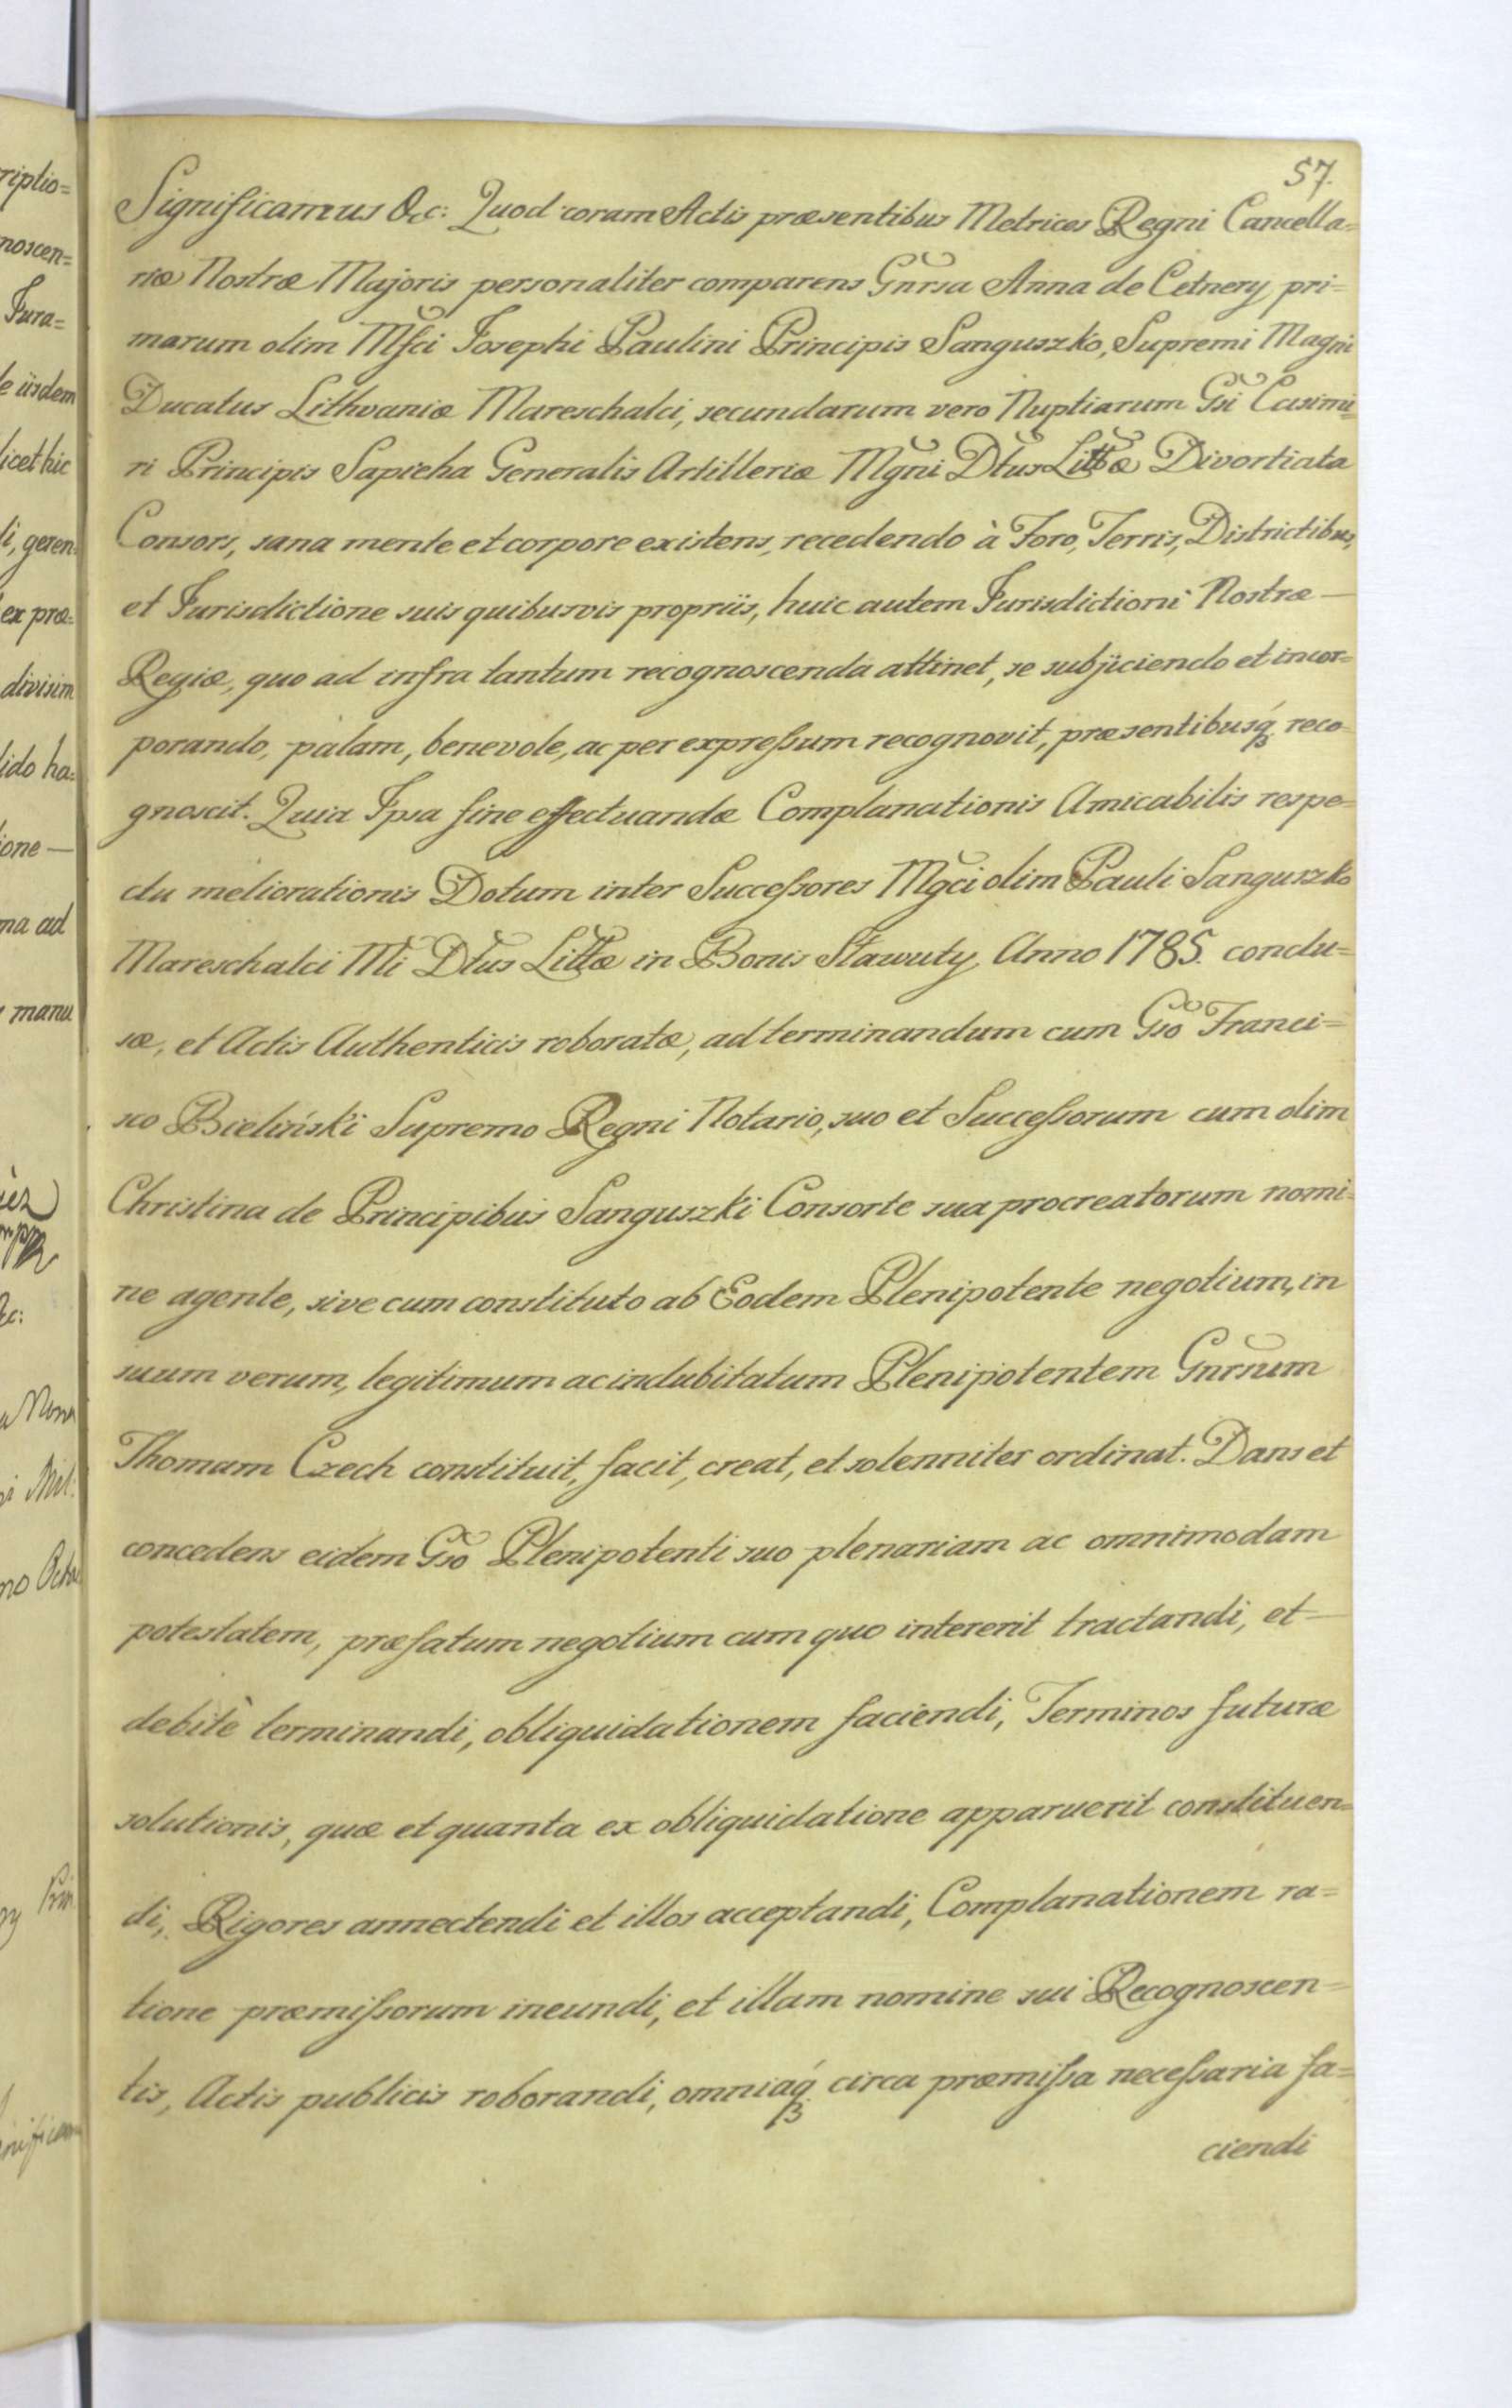 57.
Significamus &c: Quod coram Actis præsentibus Metrices Regni Cancella=
riæ Nostræ Majoris personaliter comparens Gnrsa Anna de Cetnery pri=
marum olim Mfci Josephi Paulini Principis Sanguszko, Supremi Magni
Ducatus Lithvaniæ Mareschalci, secundarum vero Nuptiarum Gsi Casimi=
ri Principis Sapieha Generalis Artilleriæ Mgni Dtus Littæ Divortiata
Consors, sana mente et corpore existens, recedendo à Foro, Terris, Districtibus,
et Jurisdictione suis quibusvis propriis, huic autem Jurisdictioni Nostræ —
Regiæ, quo ad infra tantum recognoscenda attinet, se subjiciendo et incor=
porando, palam, benevole, ac per expreſsum recognovit, præsentibusq́ꝫ reco=
gnoscit. Quia Ipsa fine effectuandæ Complanationis Amicabilis respe=
ctu meliorationis Dotum inter Succeſsores Mgci olim Pauli Sanguszko
Mareschalci Mi Dtus Littæ in Bonis Sławuty Anno 1785. conclu=
sæ, et Actis Authenticis roboratæ, ad terminandum cum Gso Franci=
sco Bieliński Supremo Regni Notario, suo et Succeſsorum cum olim
Christina de Principibus Sanguszki Consorte sua procreatorum nomi=
ne agente, sive cum constituto ab Eodem Plenipotente negotium, in
suum verum, legitimum ac indubitatum Plenipotentem Gnrnum
Thomam Czech constituit, facit, creat, et solenniter ordinat. Dans et
concedens eidem Gso Plenipotenti suo plenariam ac omnimodam
potestatem, præfatum negotium cum quo intererit tractandi, et —
debitè terminandi, obliquidationem faciendi, Terminos futuræ
solutionis, quæ et quanta ex obliquidatione apparuerit constituen=
di, Rigores annectendi et illos acceptandi, Complanationem ra=
tione præmiſsorum ineundi, et illam nomine sui Recognoscen=
tis, Actis publicis roborandi, omniaq́ꝫ circa præmiſsa neceſsaria fa=
ciendi